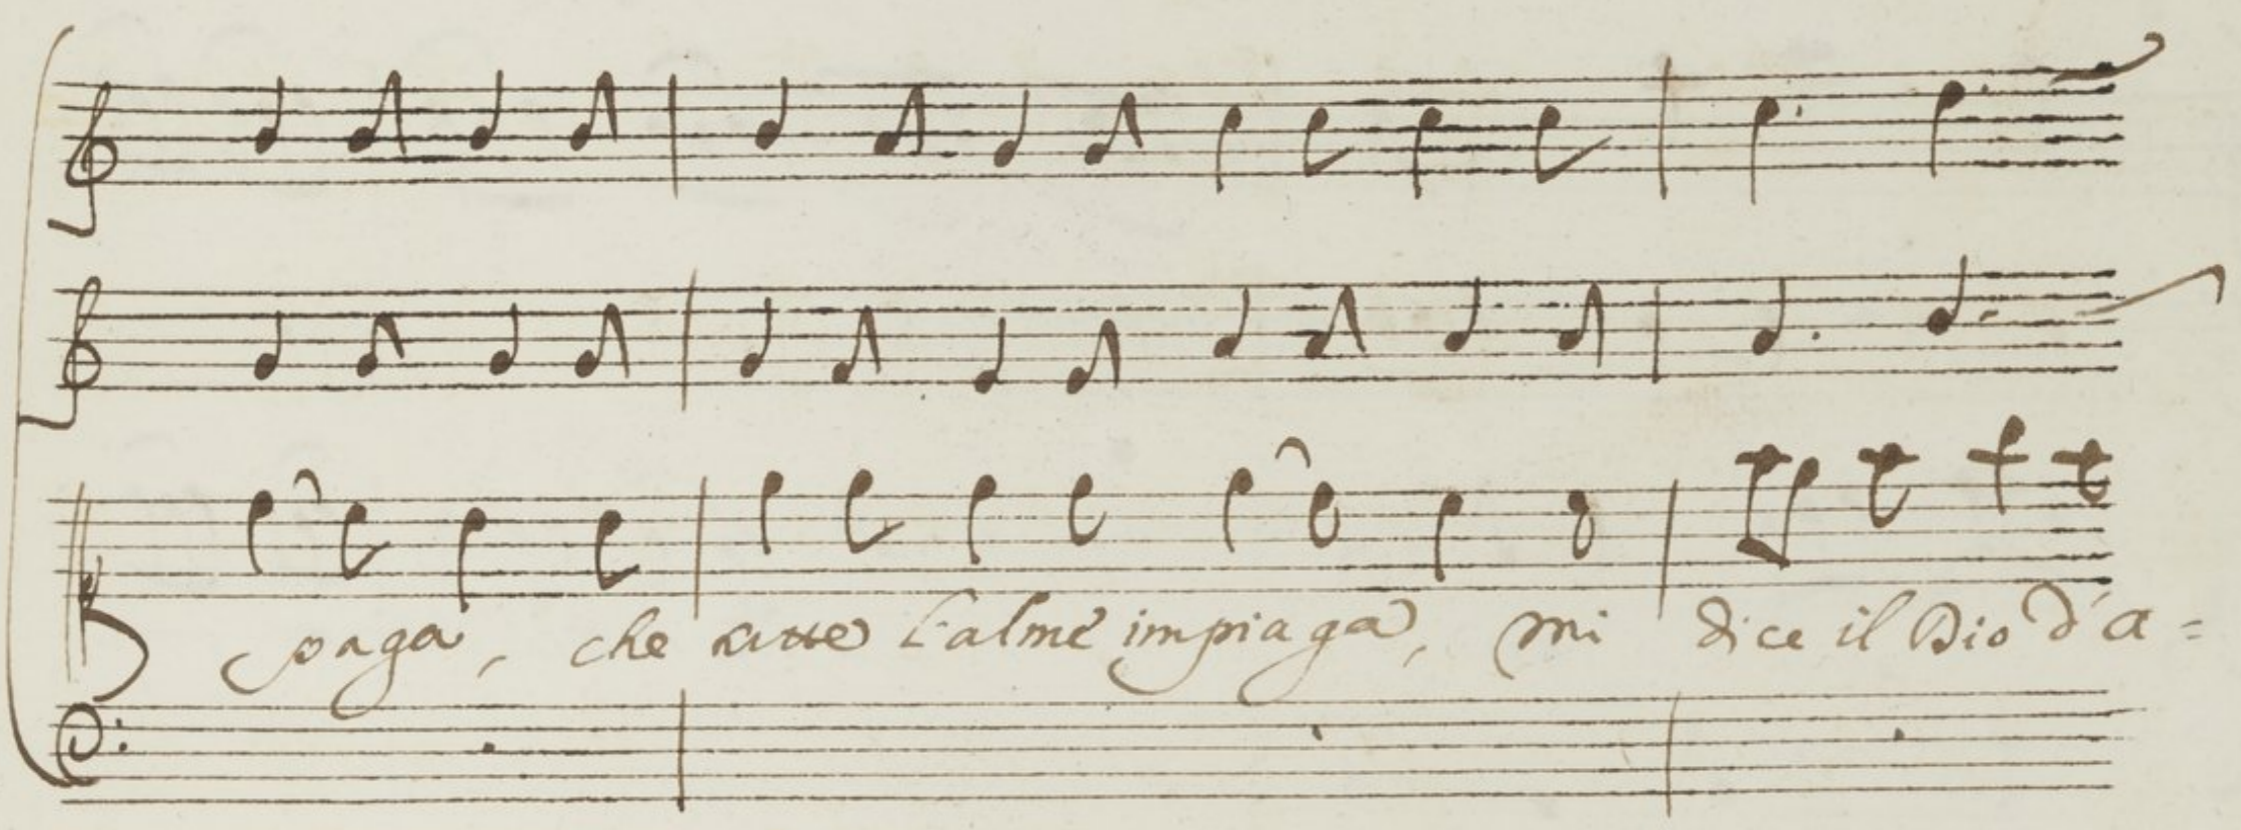 paga, che tutte l'alme impiaga, mi dice il Dio d'a=